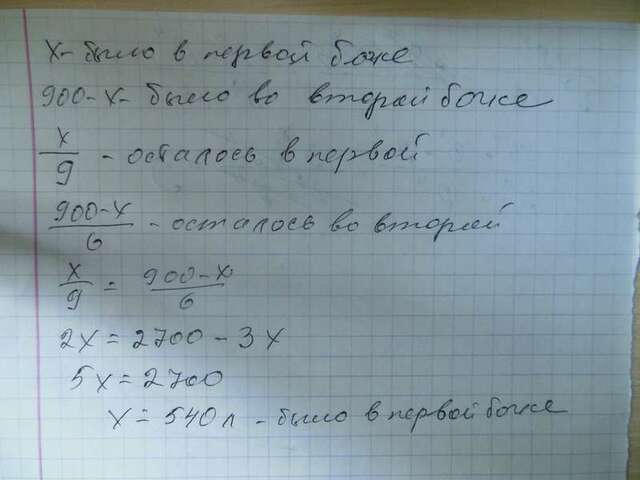 x - было в первой бочке
900-x - было во второй бочке
x/9 - осталось в первой
900-x/6 - осталось во второй
x/9 = 900-x/6
2x = 2700 - 3x
5x = 2700
x = 540 л - было в первой бочке